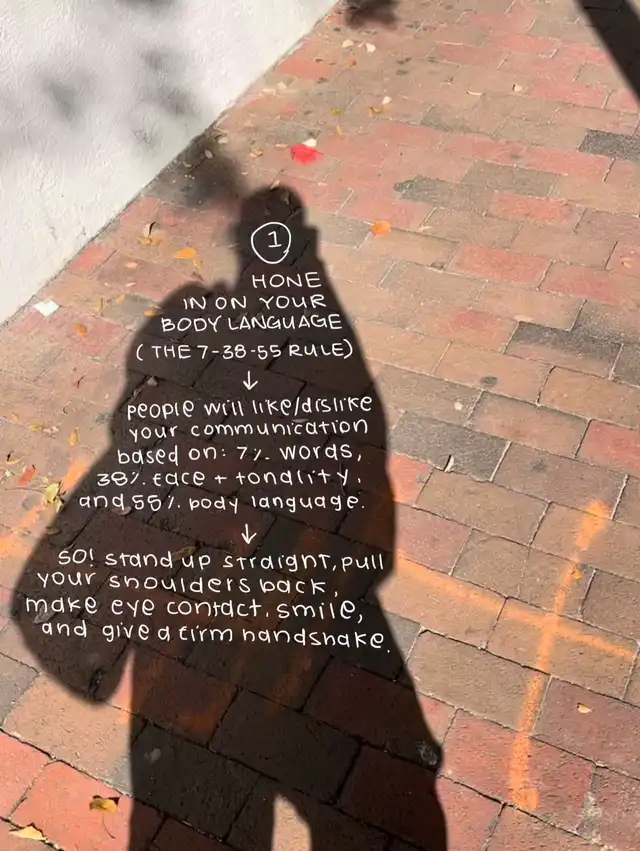 1
HONE
IN ON YOUR
BODY LANGUAGE
( THE 7-38-55 RULE)
↓
people will like/dislike
your communication
based on: 7% words,
38% face + tonality,
and 55% body language.
↓
SO! stand up straight, pull
your shoulders back,
make eye contact, smile,
and give a firm handshake.